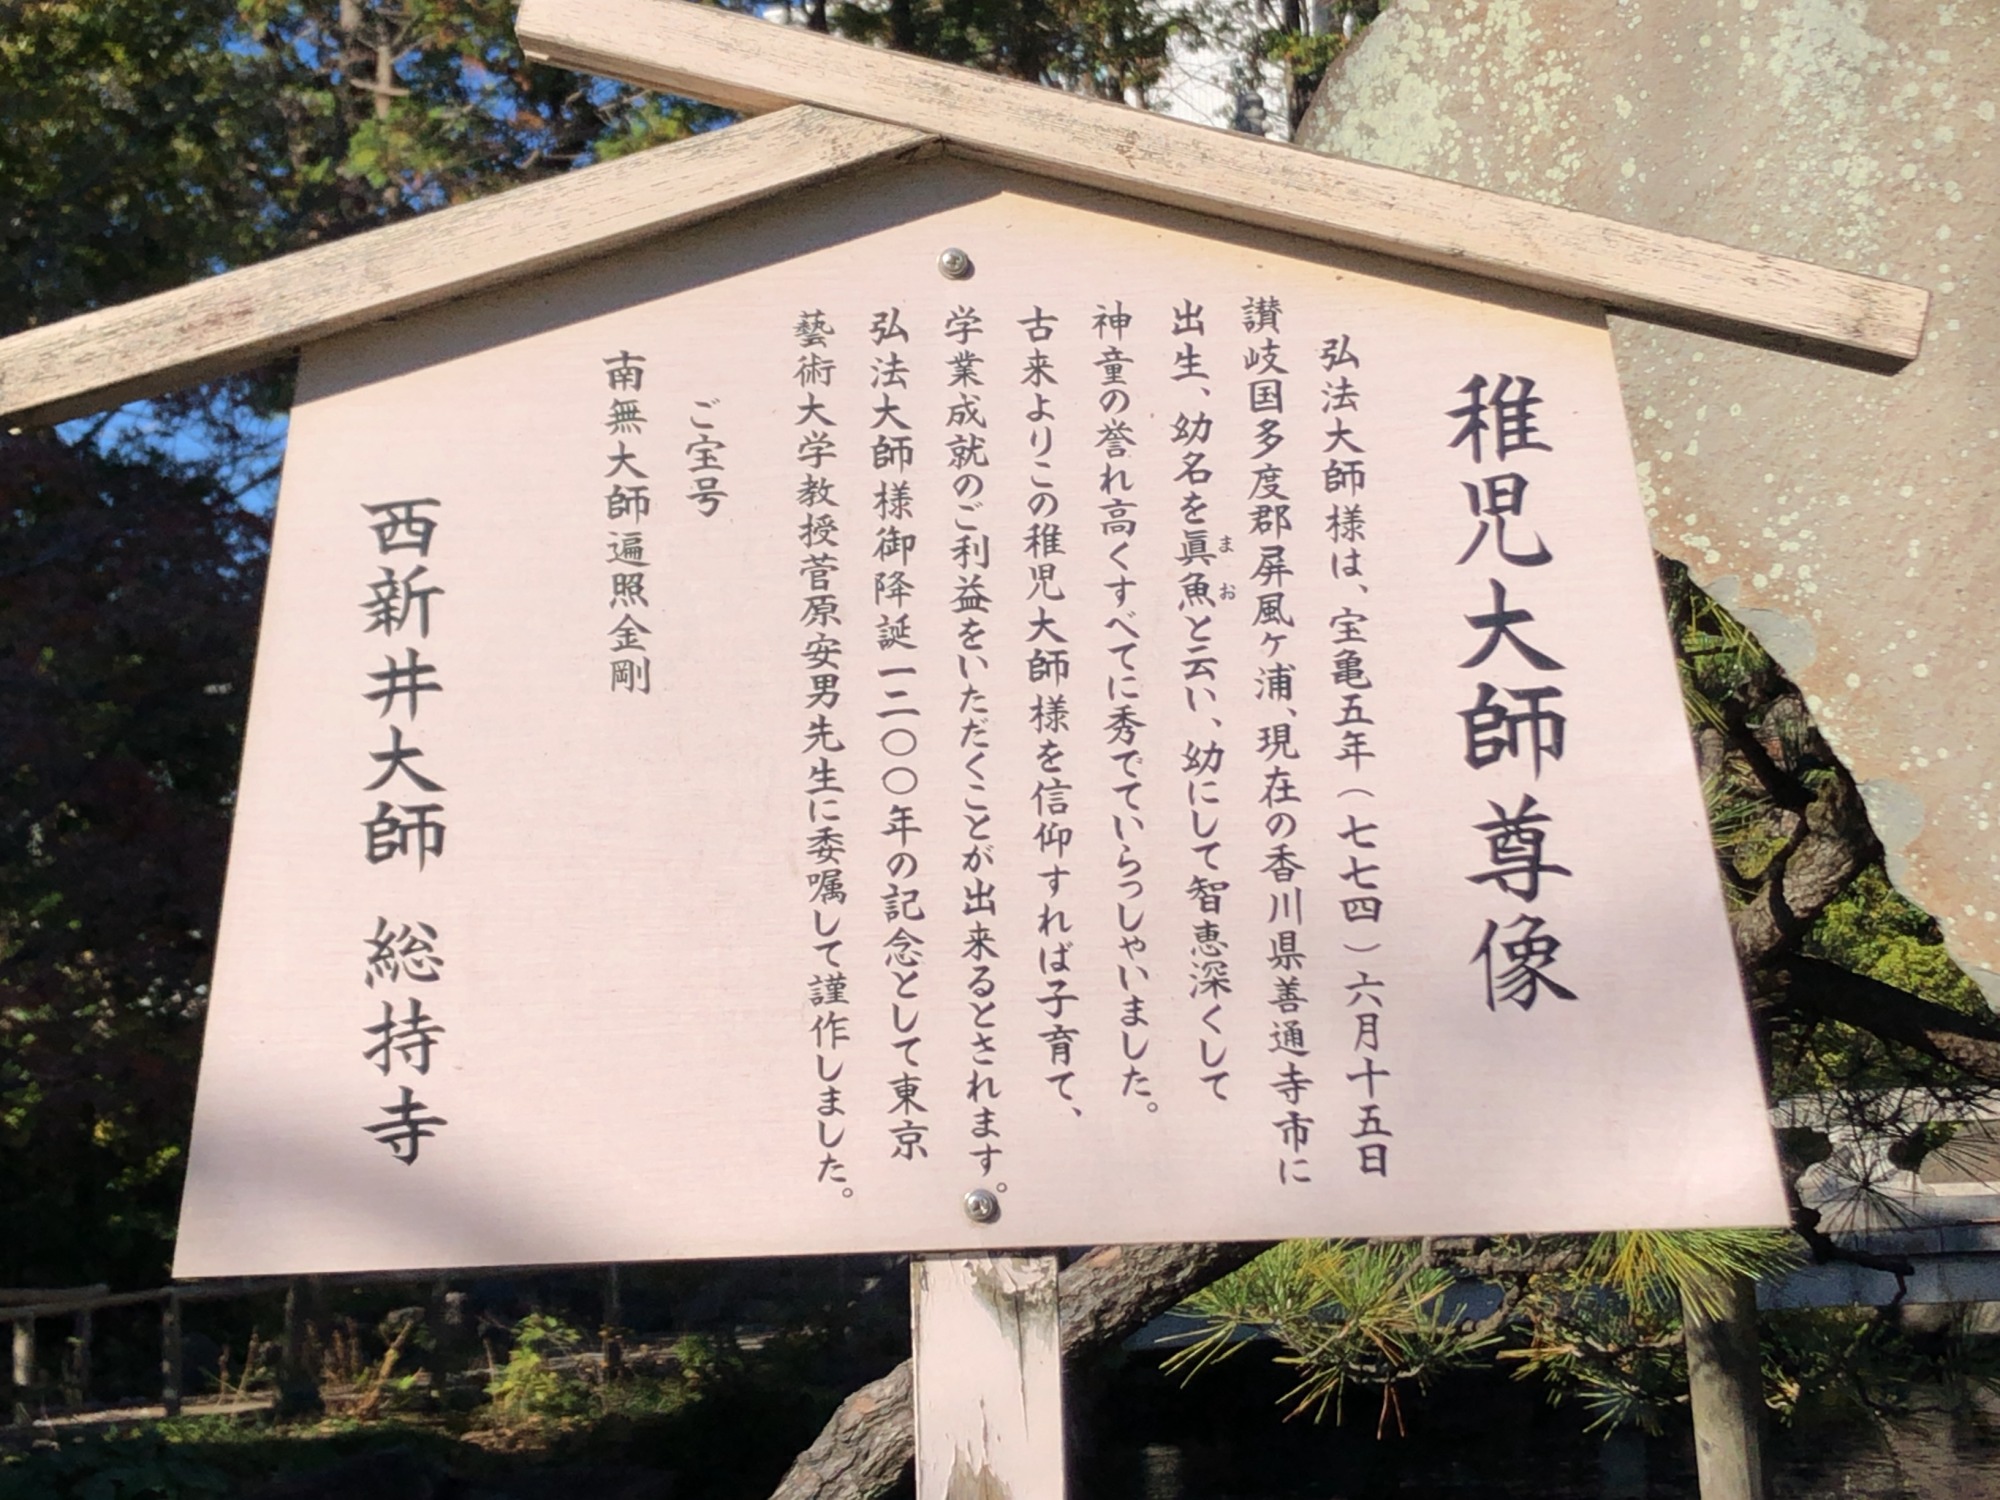 稚児大師尊像
弘法大師様は、宝亀五年（七七四）六月十五日
讃岐国多度郡屏風ヶ浦、現在の香川県善通寺市に
出生、幼名を眞魚と云い、幼にして智恵深くして
まお
神童の誉れ高くすべてに秀でていらっしゃいました。
古来よりこの稚児大師様を信仰すれば子育て、
学業成就のご利益をいただくことが出来るとされます。
弘法大師様御降誕一二〇〇年の記念として東京
藝術大学教授菅原安男先生に委嘱して謹作しました。
ご宝号
南無大師遍照金剛
西新井大師 総持寺